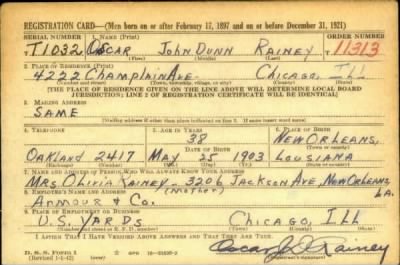 REGISTRATION CARD—(Men born on or after February 17, 1897 and on or before December 31, 1921)
SERIAL NUMBER 1. NAME (Print) ORDER NUMBER
T1032 OSCAR JOHN DUNN RAINEY 11313
(First) (Middle) (Last)
2. PLACE OF RESIDENCE (Print)
4222 CHAMPLAIN AVE. CHICAGO, ILL
(Number and street) (Town, township, village, or city) (County) (State)
[THE PLACE OF RESIDENCE GIVEN ON THE LINE ABOVE WILL DETERMINE LOCAL BOARD
JURISDICTION; LINE 2 OF REGISTRATION CERTIFICATE WILL BE IDENTICAL]
3. MAILING ADDRESS
SAME
(Mailing address if other than place indicated on line 2. If same insert word same)
4. TELEPHONE 5. AGE IN YEARS 6. PLACE OF BIRTH
38 NEW ORLEANS,
DATE OF BIRTH
OAKLAND 2417 MAY 25 1903 LOUSIANA
7. NAME AND ADDRESS OF PERSON WHO WILL ALWAYS KNOW YOUR ADDRESS
MRS OLIVIA RAINEY - 3206 JACKSON AVE, NEW ORLEANS, LA.
8. EMPLOYER'S NAME AND ADDRESS (MOTHER)
ARMOUR & CO.
9. PLACE OF EMPLOYMENT OR BUSINESS
U.S. YARDS CHICAGO, ILL
(Number and street or R. F. D. number) (Town) (County) (State)
I AFFIRM THAT I HAVE VERIFIED ABOVE ANSWERS AND THAT THEY ARE TRUE.
D. S. S. Form 1
(Revised 1-1-42) (over)
Oscar J. D. Rainey